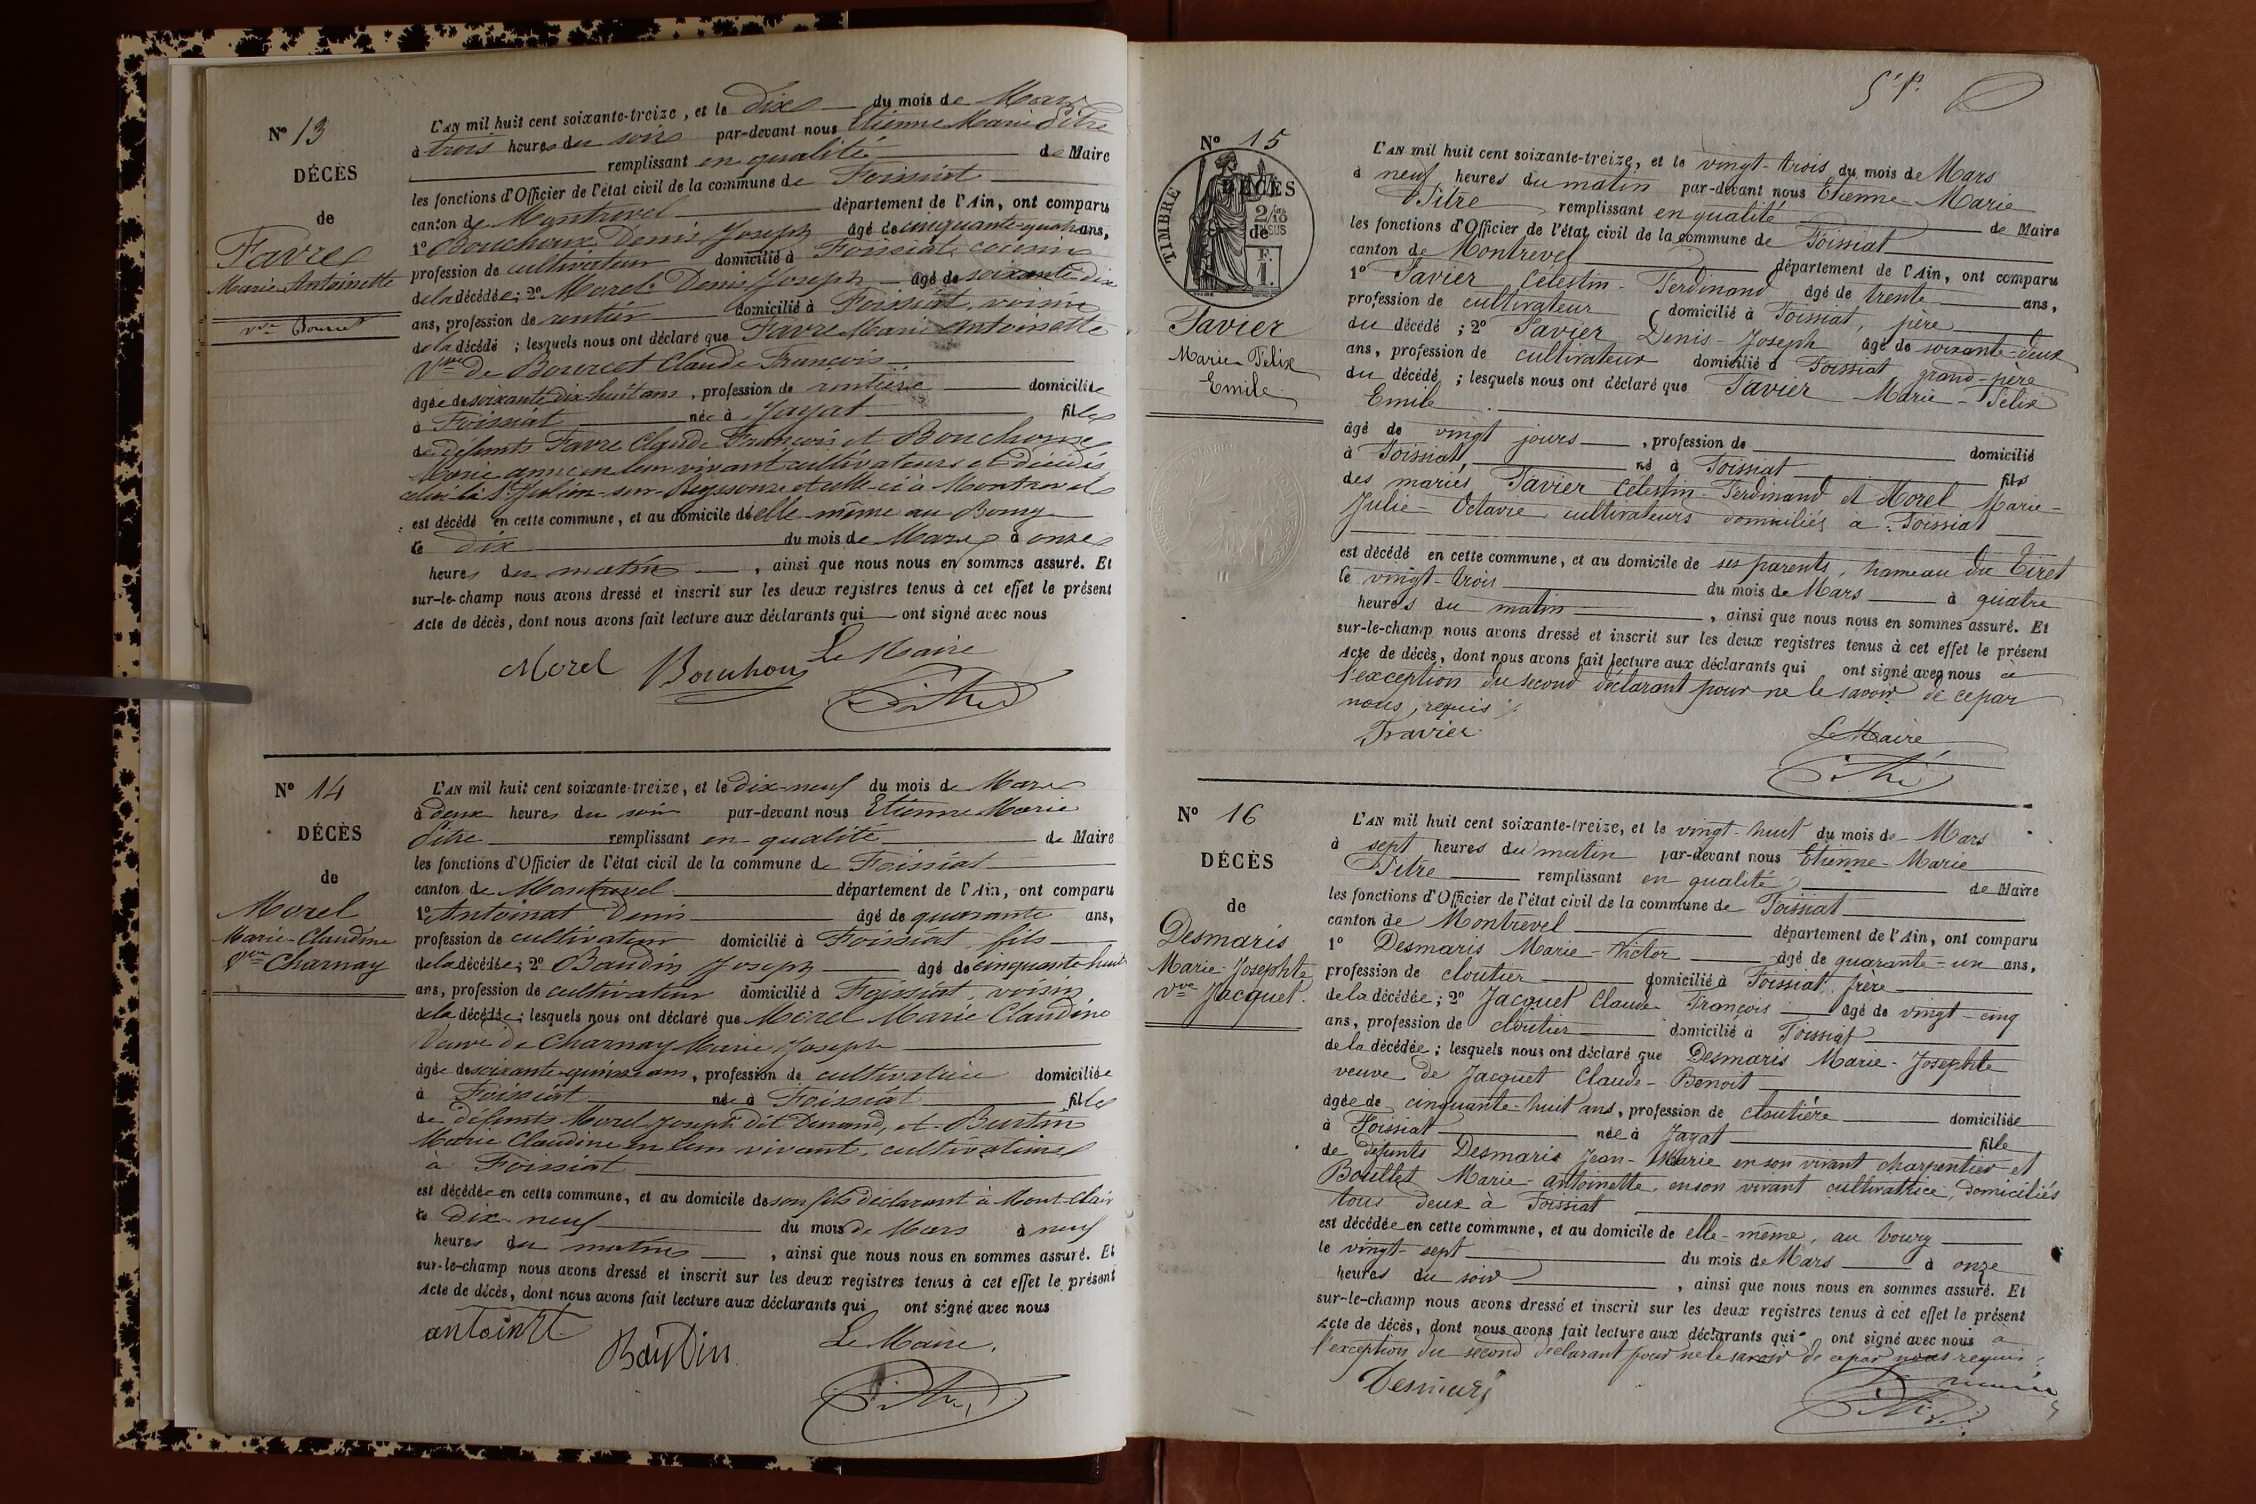 N° 13
DÉCÈS
de
Favre
Marie Antoinette
vve Bourcet
L'AN mil huit cent soixante-treize, et le dix du mois de Mars
à trois heures du soir par-devant nous Etienne Marie Pitre
remplissant en qualité de Maire
les fonctions d'Officier de l'état civil de la commune de Foissiat
canton de Montrevel département de l'Ain, ont comparu
1° Bouchoux Denis Joseph âgé de cinquante-quatre ans,
profession de cultivateur domicilié à Foissiat, cousin
de la décédée; 2° Morel Denis Joseph âgé de soixante-dix
ans, profession de rentier domicilié à Foissiat, voisin
de la décédé ; lesquels nous ont déclaré que Favre Marie Antoinette
Vve de Bourcet Claude François
âgée de soixante dix-huit ans, profession de rentière domicilée
à Foissiat née à Jayat fille
de défunts Favre Claude François et Bouchoux
Marie anne en leur vivant cultivateurs et décédés
celui-là à St Julien-sur-Reyssouze et celle-ci à Montrevel
est décédé en cette commune, et au domicile de elle même au Bourg
le dix du mois de Mars à onze
heures du matin, ainsi que nous nous en sommes assuré. Et
sur-le-champ nous avons dressé et inscrit sur les deux registres tenus à cet effet le présent
Acte de décès, dont nous avons fait lecture aux déclarants qui ont signé avec nous
Morel Bouchoux Le Maire
Pitre
N° 14
DÉCÈS
de
Morel
Marie-Claudine
Vve Charnay
L'AN mil huit cent soixante-treize, et le dix-neuf du mois de Mars
à deux heures du soir par-devant nous Etienne Marie
Pitre remplissant en qualité de Maire
les fonctions d'Officier de l'état civil de la commune de Foissiat
canton de Montrevel département de l'Ain, ont comparu
1° Antoinat Denis âgé de quarante ans,
profession de cultivateur domicilié à Foissiat, fils
de la décédée; 2° Baudin Joseph âgé de cinquante huit
ans, profession de cultivateur domicilié à Foissiat, voisin
de la décédée; lesquels nous ont déclaré que Morel Marie Claudine
Veuve de Charnay Marie Joseph
âgée de soixante-quinze ans, profession de cultivatrice domiciliée
à Foissiat née à Foissiat fille
de défunts Morel Joseph dit Durand, et Burtin
Marie Claudine en leur vivant, cultivateurs
à Foissiat
est décédée en cette commune, et au domicile de son fils déclarant à Mont-Clair
le dix-neuf du mois de Mars à neuf
heures du matin, ainsi que nous nous en sommes assuré. Et
sur-le-champ nous avons dressé et inscrit sur les deux registres tenus à cet effet le présent
Acte de décès, dont nous avons fait lecture aux déclarants qui ont signé avec nous
antoinat
Baudin Le Maire,
Pitre
N° 15
DÉCÈS
de
TIMBRE
2/10
EN SUS
F.
1.
Favier
Marie Félix
Emile
L'AN mil huit cent soixante-treize, et le vingt-trois du mois de Mars
à neuf heures du matin par-devant nous Etienne-Marie
Pitre remplissant en qualité de Maire
les fonctions d'Officier de l'état civil de la commune de Foissiat
canton de Montrevel département de l'Ain, ont comparu
1° Favier Célestin-Ferdinand âgé de trente ans,
profession de cultivateur domicilié à Foissiat, père
du décédé ; 2° Favier Denis-Joseph âgé de soixante-deux
ans, profession de cultivateur domicilié à Foissiat grand-père
du décédé ; lesquels nous ont déclaré que Favier Marie-Félix
Emile
âgé de vingt jours, profession de domicilié
à Foissiat, né à Foissiat fils
des mariés Favier Célestin-Ferdinand et Morel Marie-
Julie-Octavie cultivateurs domiciliés à Foissiat
est décédé en cette commune, et au domicile de ses parents, hameau du Tiret
le vingt-trois du mois de Mars à quatre
heures du matin, ainsi que nous nous en sommes assuré. Et
sur-le-champ nous avons dressé et inscrit sur les deux registres tenus à cet effet le présent
Acte de décès, dont nous avons fait lecture aux déclarants qui ont signé avec nous à
l'exception du second déclarant pour ne le savoir de ce par
nous requis
Favier Le Maire
Pitre
N° 16
DÉCÈS
de
Desmaris
Marie-Josephte
Vve Jacquet.
L'AN mil huit cent soixante-treize, et le vingt-huit du mois de Mars
à sept heures du matin par-devant nous Etienne-Marie
Pitre remplissant en qualité de Maire
les fonctions d'Officier de l'état civil de la commune de Foissiat
canton de Montrevel département de l'Ain, ont comparu
1° Desmaris Marie-Victor âgé de quarante-un ans,
profession de cloutier domicilié à Foissiat, frère
de la décédée; 2° Jacquet Claude François âgé de vingt-cinq
ans, profession de cloutier domicilié à Foissiat
de la décédée; lesquels nous ont déclaré que Desmaris Marie-Josephte
veuve de Jacquet Claude-Benoit
âgée de cinquante-huit ans, profession de cloutière domiciliée
à Foissiat née à Jayat fille
de défunts Desmaris Jean-Marie en son vivant charpentier et
Bouillet Marie-antoinette, en son vivant cultivatrice, domiciliés
tous deux à Foissiat
est décédée en cette commune, et au domicile de elle-même, au bourg
le vingt-sept du mois de Mars à onze
heures du soir, ainsi que nous nous en sommes assuré. Et
sur-le-champ nous avons dressé et inscrit sur les deux registres tenus à cet effet le présent
Acte de décès, dont nous avons fait lecture aux déclarants qui ont signé avec nous à
l'exception du second déclarant pour ne le savoir de ce par nous requis
Desmaris
Pitre